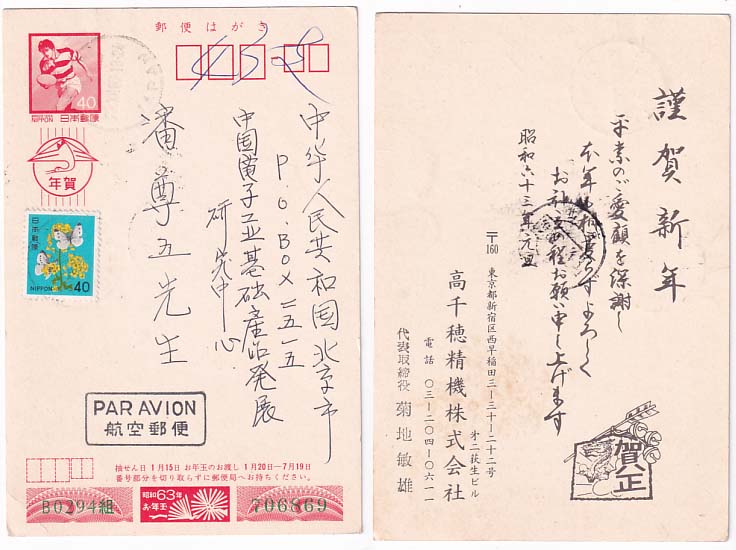 郵便はがき
40
日本郵便
年賀
日本郵便
NIPPON
40
中华人民共和国北京市
P.O.BOX 二五一五
中国電子工业基础產品発展
研究中心
潘尊五先生
PAR AVION
航空郵便
抽せん日 1月15日 お年玉のお渡し 1月20日-7月19日
番号部分を切り取らずに郵便局へお持ちください。
B0294組
昭和63年
お年玉
706869
謹賀新年
平素のご愛顧を深謝し
本年も相変らずよろしく
お社交の程お願い申し上げます
昭和六十三年元旦
〒160 東京都新宿区西早稲田三-三十-二十二号
才二荻生ビル
高千穂精機株式会社
電話 〇三-二〇四-〇六一一
代表取締役 菊地敏雄
賀正